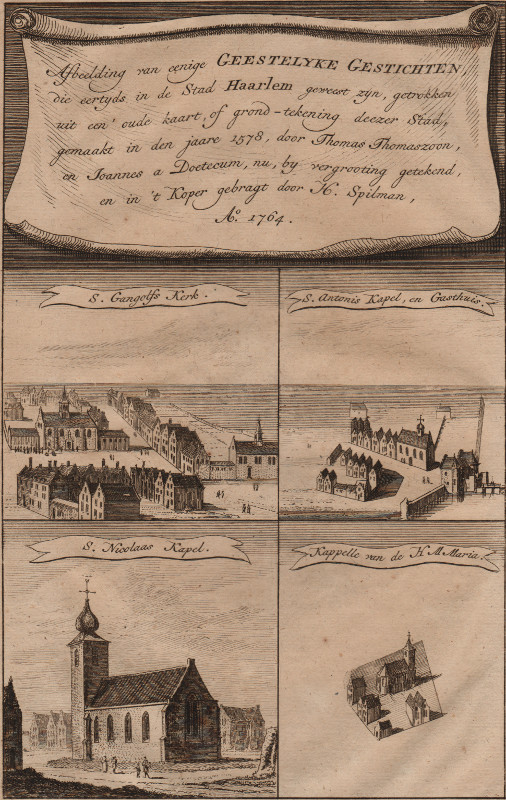 Afbeelding van eenige GEESTELYKE GESTICHTEN,
die eertyds in de Stad Haarlem geweest zyn, getrokken
uit een' oude kaart, of grond-tekening deezer Stad,
gemaakt in den jaare 1578, door Thomas Thomaszoon,
en Joannes a Doetecum, nu, by vergrooting getekend,
en in 't Koper gebragt door H. Spilman,
Aº. 1764.
S. Gangolfs Kerk.
S. Antonis Kapel, en Gasthuis.
S. Nicolaas Kapel.
Kappelle van de H. M. Maria.